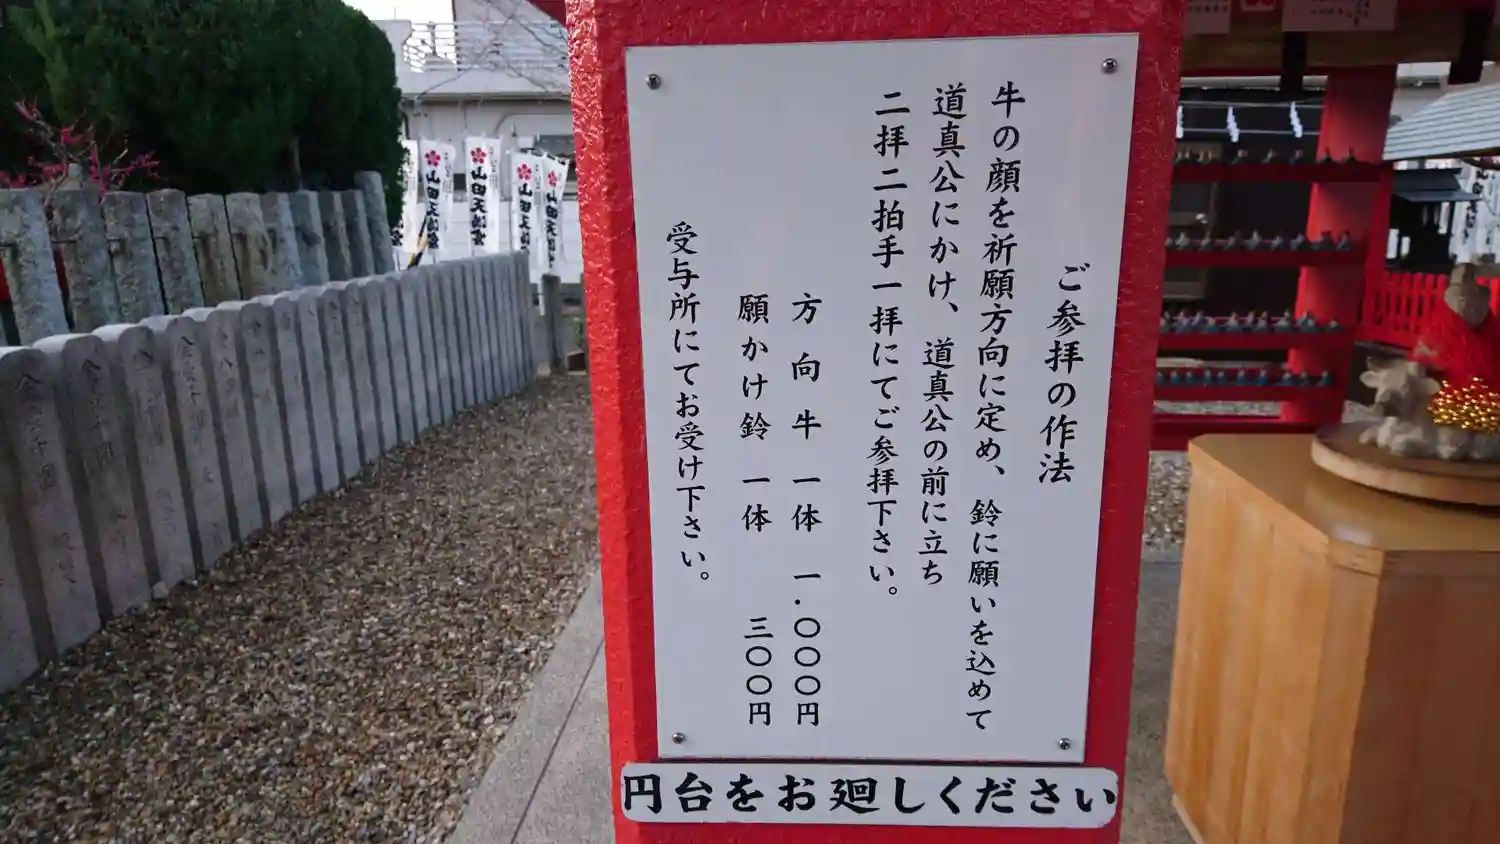 ご参拝の作法
牛の顔を祈願方向に定め、鈴に願いを込めて
道真公にかけ、道真公の前に立ち
二拝二拍手一拝にてご参拝下さい。
方向牛 一体 一.〇〇〇円
願かけ鈴 一体 三〇〇円
受与所にてお受け下さい。
円台をお廻しください
山田天満宮
山田天満宮
山田天満宮
山田天満宮